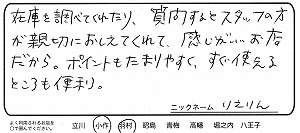 在庫を調べてくれたり、質問するとスタッフの方
が親切におしえてくれて、感じがいいお店
だから。ポイントもたまりやすく、すぐ使える
ところも便利。
ニックネーム りえりん
よく利用されるお店を
○で囲んでください。 立川 小作 羽村 昭島 青梅 高幡 堀之内 八王子